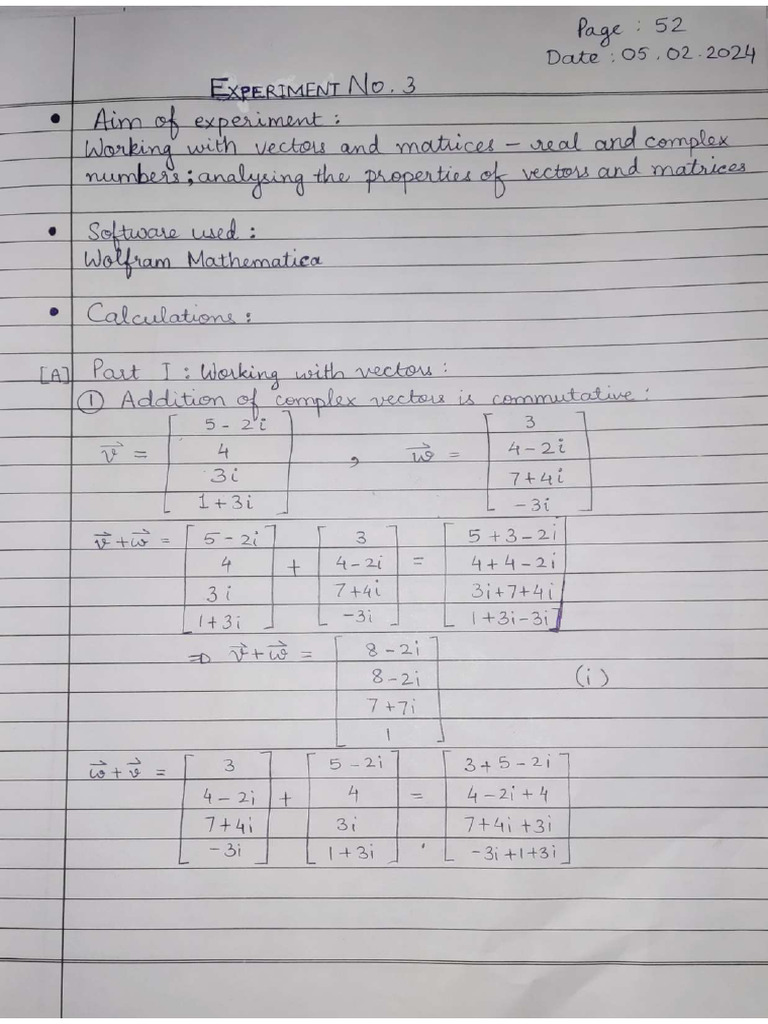 Page : 52
Date : 05.02.2024
EXPERIMENT NO. 3
• Aim of experiment :
Working with vectors and matrices – real and complex
numbers ; analysing the properties of vectors and matrices
• Software used :
Wolfram Mathematica
• Calculations :
[A] Part I : Working with vectors :
① Addition of complex vectors is commutative :
v⃗ = [5 - 2i
4
3i
1 + 3i] , w⃗ = [3
4 - 2i
7 + 4i
-3i]
v⃗ + w⃗ = [5 - 2i
4
3i
1 + 3i] + [3
4 - 2i
7 + 4i
-3i] = [5 + 3 - 2i
4 + 4 - 2i
3i + 7 + 4i
1 + 3i - 3i]
⇒ v⃗ + w⃗ = [8 - 2i
8 - 2i
7 + 7i
1] (i)
w⃗ + v⃗ = [3
4 - 2i
7 + 4i
-3i] + [5 - 2i
4
3i
1 + 3i] = [3 + 5 - 2i
4 - 2i + 4
7 + 4i + 3i
-3i + 1 + 3i]